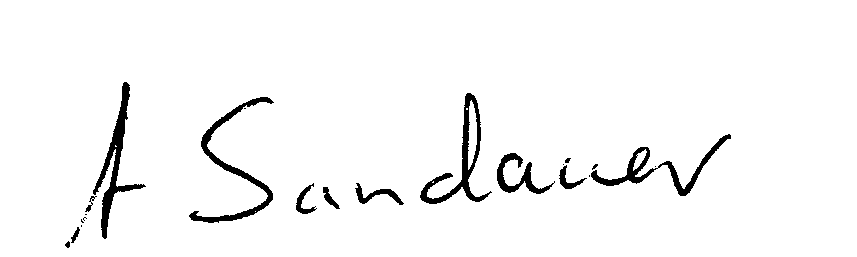 A Sandauer